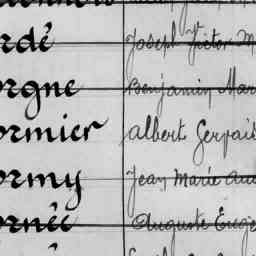 rdé Joseph Victor M
orgne Benjamin Mar
ormier Albert Gervais
ormy Jean Marie Au
ornée Auguste Euge